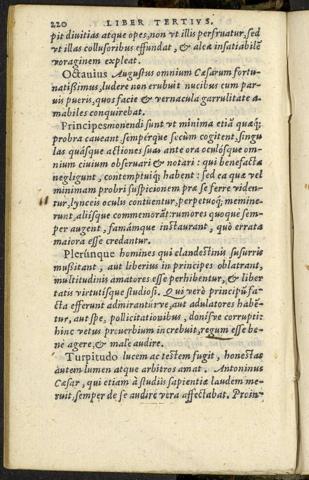 220 LIBER TERTIVS.
pit diuitias atque opes, non vt illis perfruatur, sed
vt illas collusoribus effundat, & aleæ insatiabilẽ
voraginem expleat.
Octauius Augustus omnium Cæsarum fortu-
natissimus, ludere non erubuit nucibus cum par-
uis pueris, quos facie & vernacula garrulitate a-
mabiles conquirebat.
Principes monendi sunt vt minima etiã quæq;
probra caueant, sempérque secùm cogitent, singu
las quásque actiones suas ante ora oculósque om-
nium ciuium obseruari & notari: qui benefacta
negligunt, contemptuíq; habent: sed ea quæ vel
minimam probri suspicionem præ se ferre viden-
tur, lynceis oculis contuentur, perpetuóq; memine-
runt, aliísque commemorãt: rumores quoque sem-
per augent, famámque instaurant, quò errata
maiora esse credantur.
Plerúnque homines qui clandestinis susurris
mussitant, aut liberius in principes oblatrant,
multitudinis amatores esse perhibentur, & liber
tatis virtutísque studiosi. Qui verò principũ fa-
cta efferunt admiranturve, aut adulatores habẽ-
tur, aut spe, pollicitationibus, donísve corrupti:
hinc vetus prouerbium increbuit, regum esse be-
ne agere, & malè audire.
Turpitudo lucem ac testem fugit, honestas
autem lumen atque arbitros amat. Antoninus
Cæsar, qui etiam à studiis sapientiæ laudem me-
ruit, semper de se audire vera affectabat. Proin-